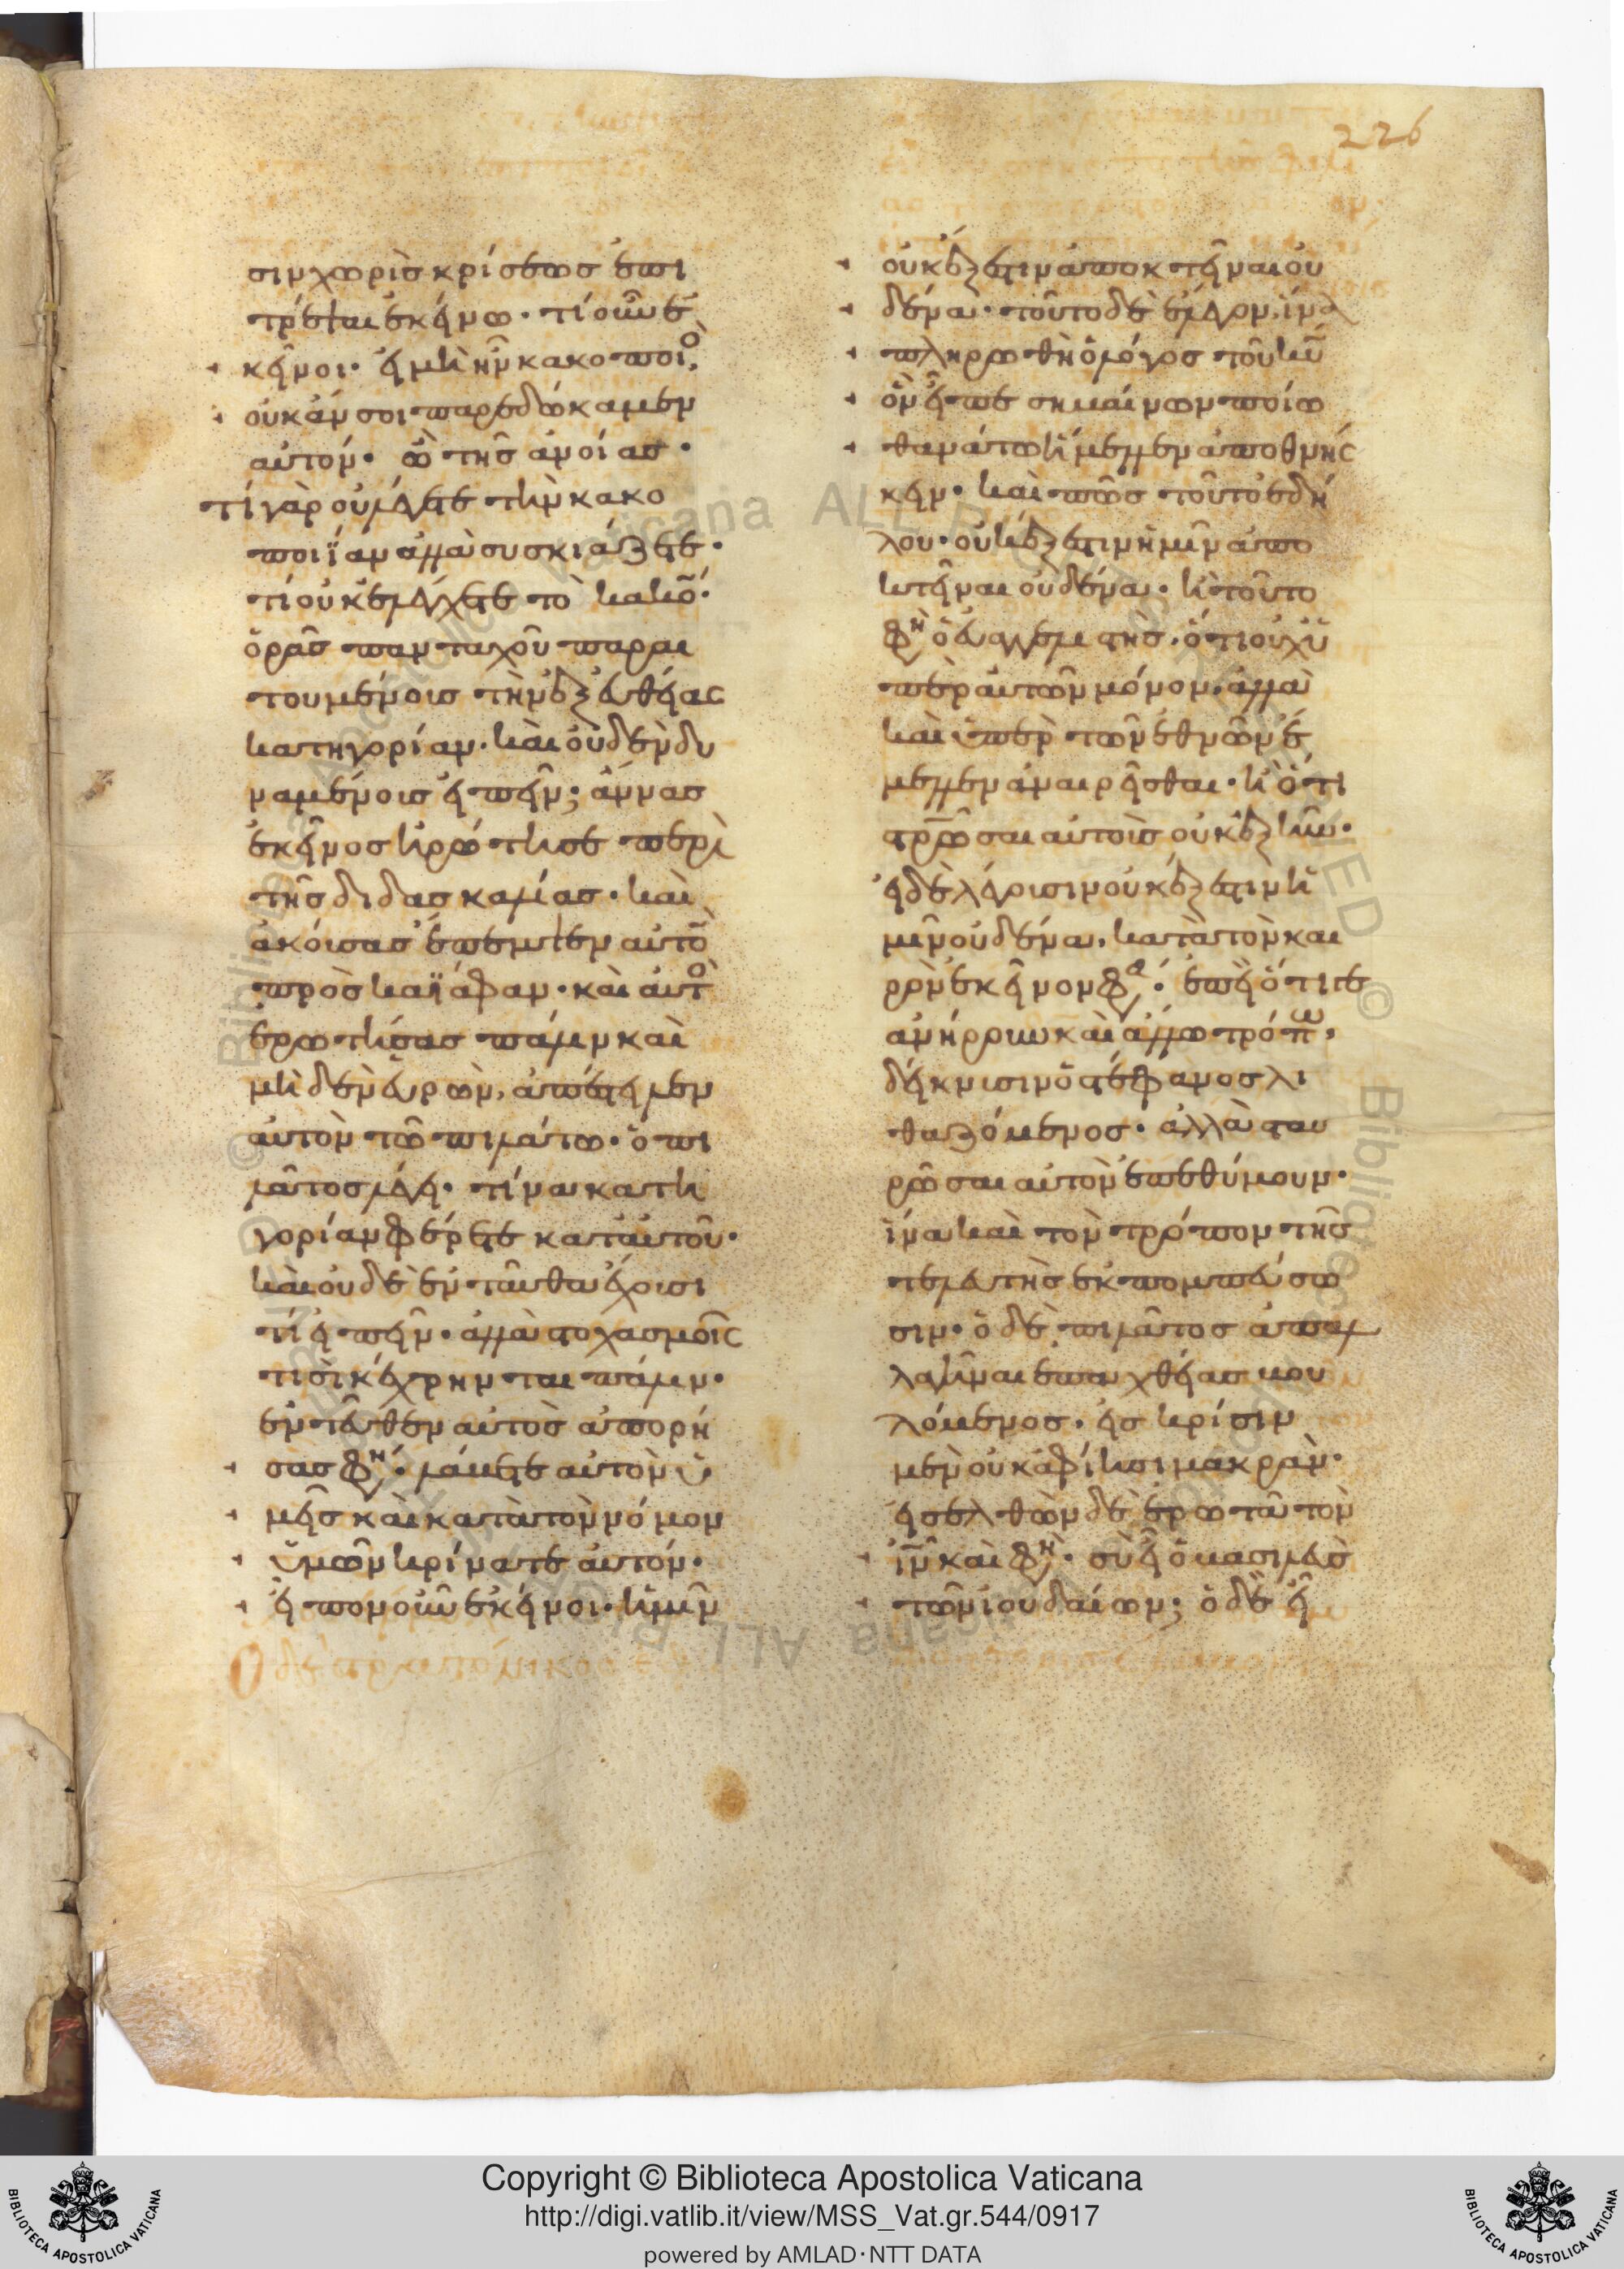 226
σιν χωρὶς κρίσεως ἐπι
τρέψαι ἐκείνω· τί οὖν ἐ
κεῖνοι· εἰ μὴ ἦν κακοποιὸ,
οὐκ ἄν σοι παρεδώκαμεν
αὐτόν· ὢ τῆς ἀνοίας·
τί γὰρ οὐ λέγετε τὴν κακο
ποιΐαν ἀλλὰ συσκιάζετε·
τί οὐκ ἐλέγχετε τὸ κακό·
ὁρᾶς πανταχοῦ παραι
τουμένους τὴν ἐξ εὐθείας
κατηγορίαν· καὶ οὐδὲν δυ
ναμένους εἰπεῖν; ἄννας
ἐκεῖνος ἠρώτησε περὶ
τῆς διδασκαλίας· καὶ
ἀκούσας ἔπεμψεν αὐτὸ
πρὸς καϊάφαν· καὶ αὐτὸ
ἐρωτήσας πάλιν καὶ
μηδὲν εὑρὼν, ἀπέστειλεν
αὐτὸν τῶ πιλάτω· ὁ πι
λᾶτος λέγει· τίνα κατη
γορίαν φέρετε κατ' αὐτοῦ·
καὶ οὐδὲ ἐνταῦθα ἔχουσι
τί εἰπεῖν· ἀλλὰ στοχασμοῖς
τισὶ κέχρηνται πάλιν·
ἐντεῦθεν αὐτὸς ἀπορή
σας φη· λάβετε αὐτὸν ὑ
μεῖς καὶ κατὰ τὸν νόμον
ὑμῶν κρίνατε αὐτόν·
εἶπον οὖν ἐκεῖνοι· ἡμῖν
οὐκ ἔξεστιν ἀποκτεῖναι οὐ
δένα· τοῦτο δὲ ἔλεγον, ἵνα
πληρωθῆ ὁ λόγος τοῦ κυ
ὃν εἶπε σημαίνων ποίω
θανάτω ἤμελλεν ἀποθνήσ
κειν· καὶ πῶς τοῦτο ἐδή
λου· οὐκ ἔξεστιν ἡμῖν ἀπο
κτεῖναι οὐδένα· ἢ τοῦτο
φη ὁ εὐαγγελιστὴς· ὅτι οὐχ ὑ
πὲρ αὐτῶν μόνον, ἀλλὰ
καὶ ὑπὲρ τῶν ἐθνῶν ἔ
μελλεν ἀναιρεῖσθαι· ἢ ὅτι
στρῶσαι αὐτοὺς οὐκ ἐξῆν·
εἰ δὲ λέγουσιν οὐκ ἔξεστιν ἡ
μῖν οὐδένα, κατὰ τὸν και
ρὸν ἐκεῖνον φα· ἐπεὶ ὅτι γε
ἀνήρουν καὶ ἄλλω τρόπω,
δείκνυσιν ὁ στέφανος λι
θαζόμενος· ἀλλὰ σταυ
ρῶσαι αὐτὸν ἐπεθύμουν·
ἵνα καὶ τὸν τρόπον τῆς
τελευτῆς ἐκπομπεύσω
σιν· ὁ δὲ πιλᾶτος ἀπαλ
λαγῆναι ἐπαχθείας βου
λόμενος, εἰς κρίσιν
μὲν οὐκ ἀφίησι μακρὰν·
εἰσελθὼν δὲ ἐρωτᾶ τὸν
ιν καὶ φη· σὺ εἶ ὁ βασιλεὺς
τῶν ἰουδαίων; ὁ δὲ εἶ
Copyright © Biblioteca Apostolica Vaticana
http://digi.vatlib.it/view/MSS_Vat.gr.544/0917
powered by AMLAD·NTT DATA
BIBLIOTECA APOSTOLICA VATICANA
BIBLIOTECA APOSTOLICA VATICANA